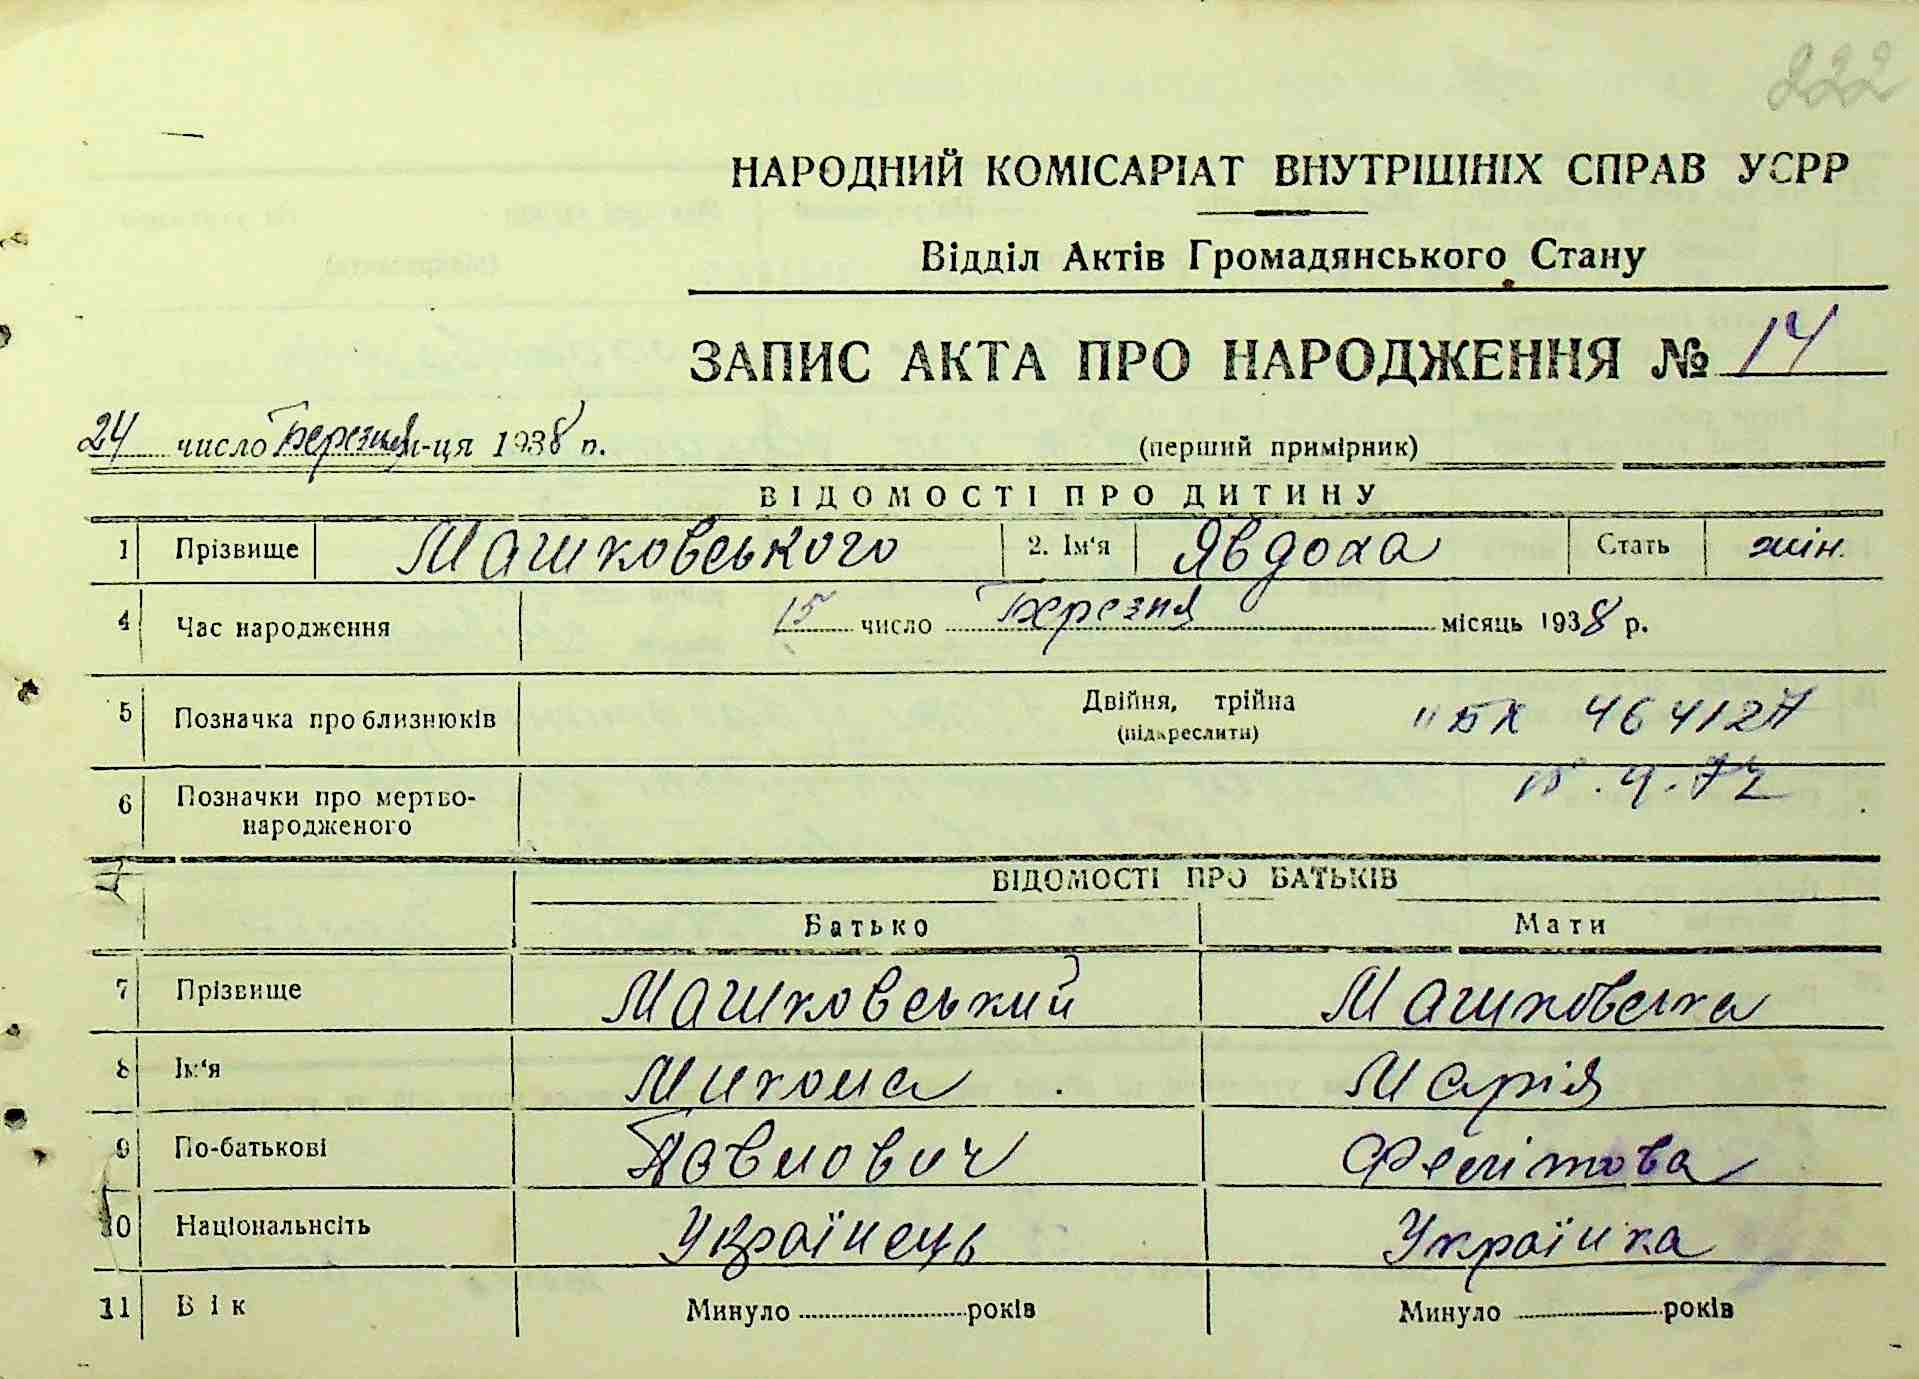 222
НАРОДНИЙ КОМІСАРІАТ ВНУТРІШНІХ СПРАВ УСРР
Відділ Актів Громадянського Стану
ЗАПИС АКТА ПРО НАРОДЖЕННЯ № 14
24 число Березня м-ця 1938 р. (перший примірник)
ВІДОМОСТІ ПРО ДИТИНУ
1 Прізвище Машковського 2. Ім'я Явдоха Стать жін.
4 Час народження 15 число Березня місяць 1938 р.
5 Позначка про близнюків Двійня, трійна (підкреслити) "БК 464127
6 Позначки про мертво-народженого 15.9.72
ВІДОМОСТІ ПРО БАТЬКІВ
Батько Мати
7 Прізвище Машковський Машковська
8 Ім'я Микола Марія
9 По-батькові Павлович
10 Національнсіть Українець Українка
11 Вік Минуло років Минуло років